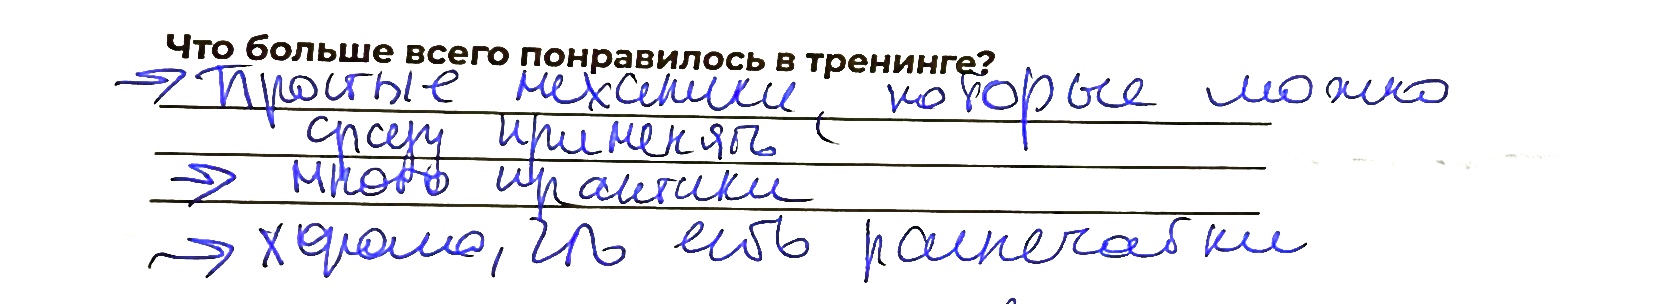 Что больше всего понравилось в тренинге?
→ Простые механики, которые можно
сразу применять
→ много практики
→ хорошо, что есть распечатки